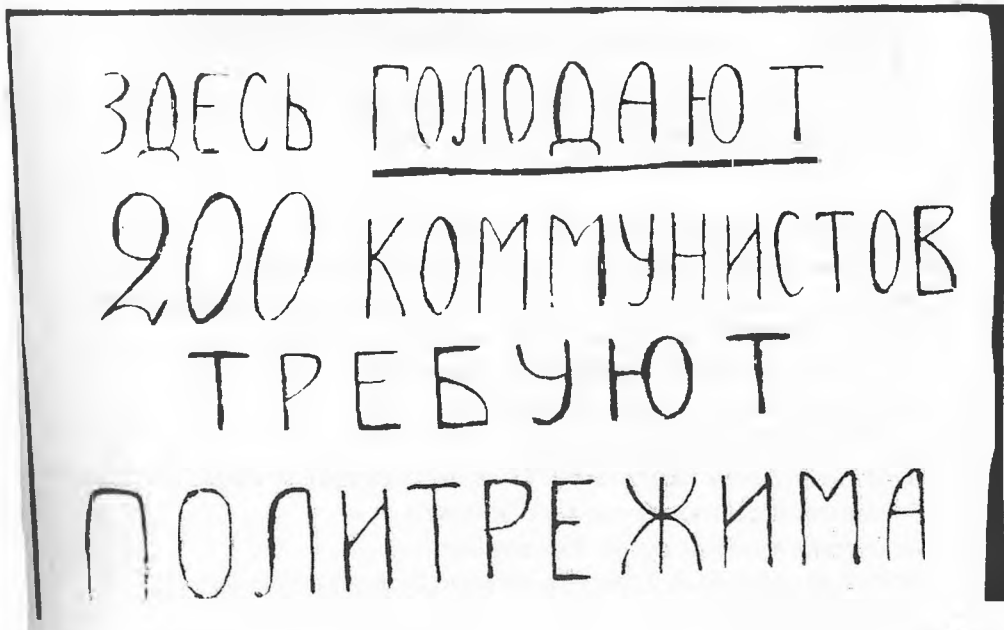 ЗДЕСЬ ГОЛОДАЮТ
200 КОММУНИСТОВ
ТРЕБУЮТ
ПОЛИТРЕЖИМА